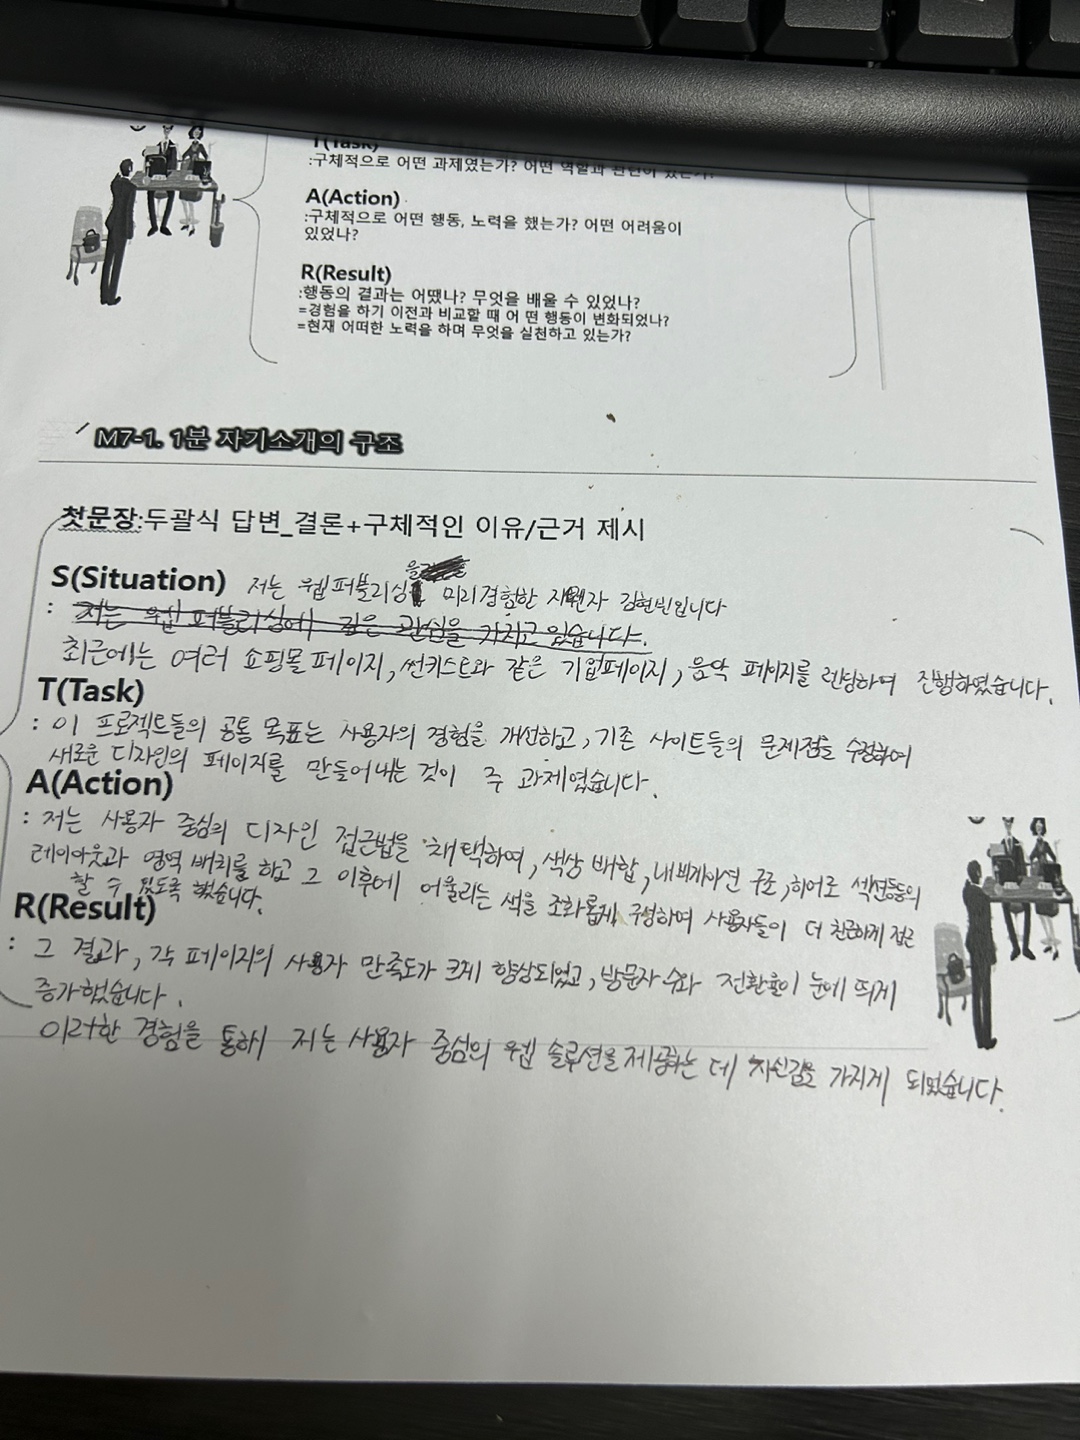 T(Task)
:구체적으로 어떤 과제였는가? 어떤 역할과 관련이 있는가?
A(Action)
:구체적으로 어떤 행동, 노력을 했는가? 어떤 어려움이
있었나?
R(Result)
:행동의 결과는 어땠나? 무엇을 배울 수 있었나?
=경험을 하기 이전과 비교할 때 어 떤 행동이 변화되었나?
=현재 어떠한 노력을 하며 무엇을 실천하고 있는가?
M7-1. 1분 자기소개의 구조
첫문장:두괄식 답변_결론+구체적인 이유/근거 제시
S(Situation) 저는 웹퍼블리싱을 미리경험한 지원자 김현빈입니다
: 저는 웹 퍼블리싱에 깊은 관심을 가지고 있습니다.
최근에는 여러 쇼핑몰페이지, 썬키스트와 같은 기업페이지, 음악 페이지를 렌딩하며 진행하였습니다.
T(Task)
: 이 프로젝트들의 공통 목표는 사용자의 경험을 개선하고, 기존 사이트들의 문제점을 수정하여
새로운 디자인의 페이지를 만들어내는 것이 주 과제였습니다.
A(Action)
: 저는 사용자 중심의 디자인 접근법을 채택하여, 색상 배합, 내비게이션 구조, 히어로 섹션등의
레이아웃과 영역 배치를 하고 그 이후에 어울리는 색을 조화롭게 구성하며 사용자들이 더 친근하게 접근
할 수 있도록 했습니다.
R(Result)
: 그 결과, 각 페이지의 사용자 만족도가 크게 향상되었고, 방문자 수와 전환율이 눈에 띄게
증가했습니다.
이러한 경험을 통해 저는 사용자 중심의 웹 솔루션을 제공하는 데 자신감을 가지게 되었습니다.